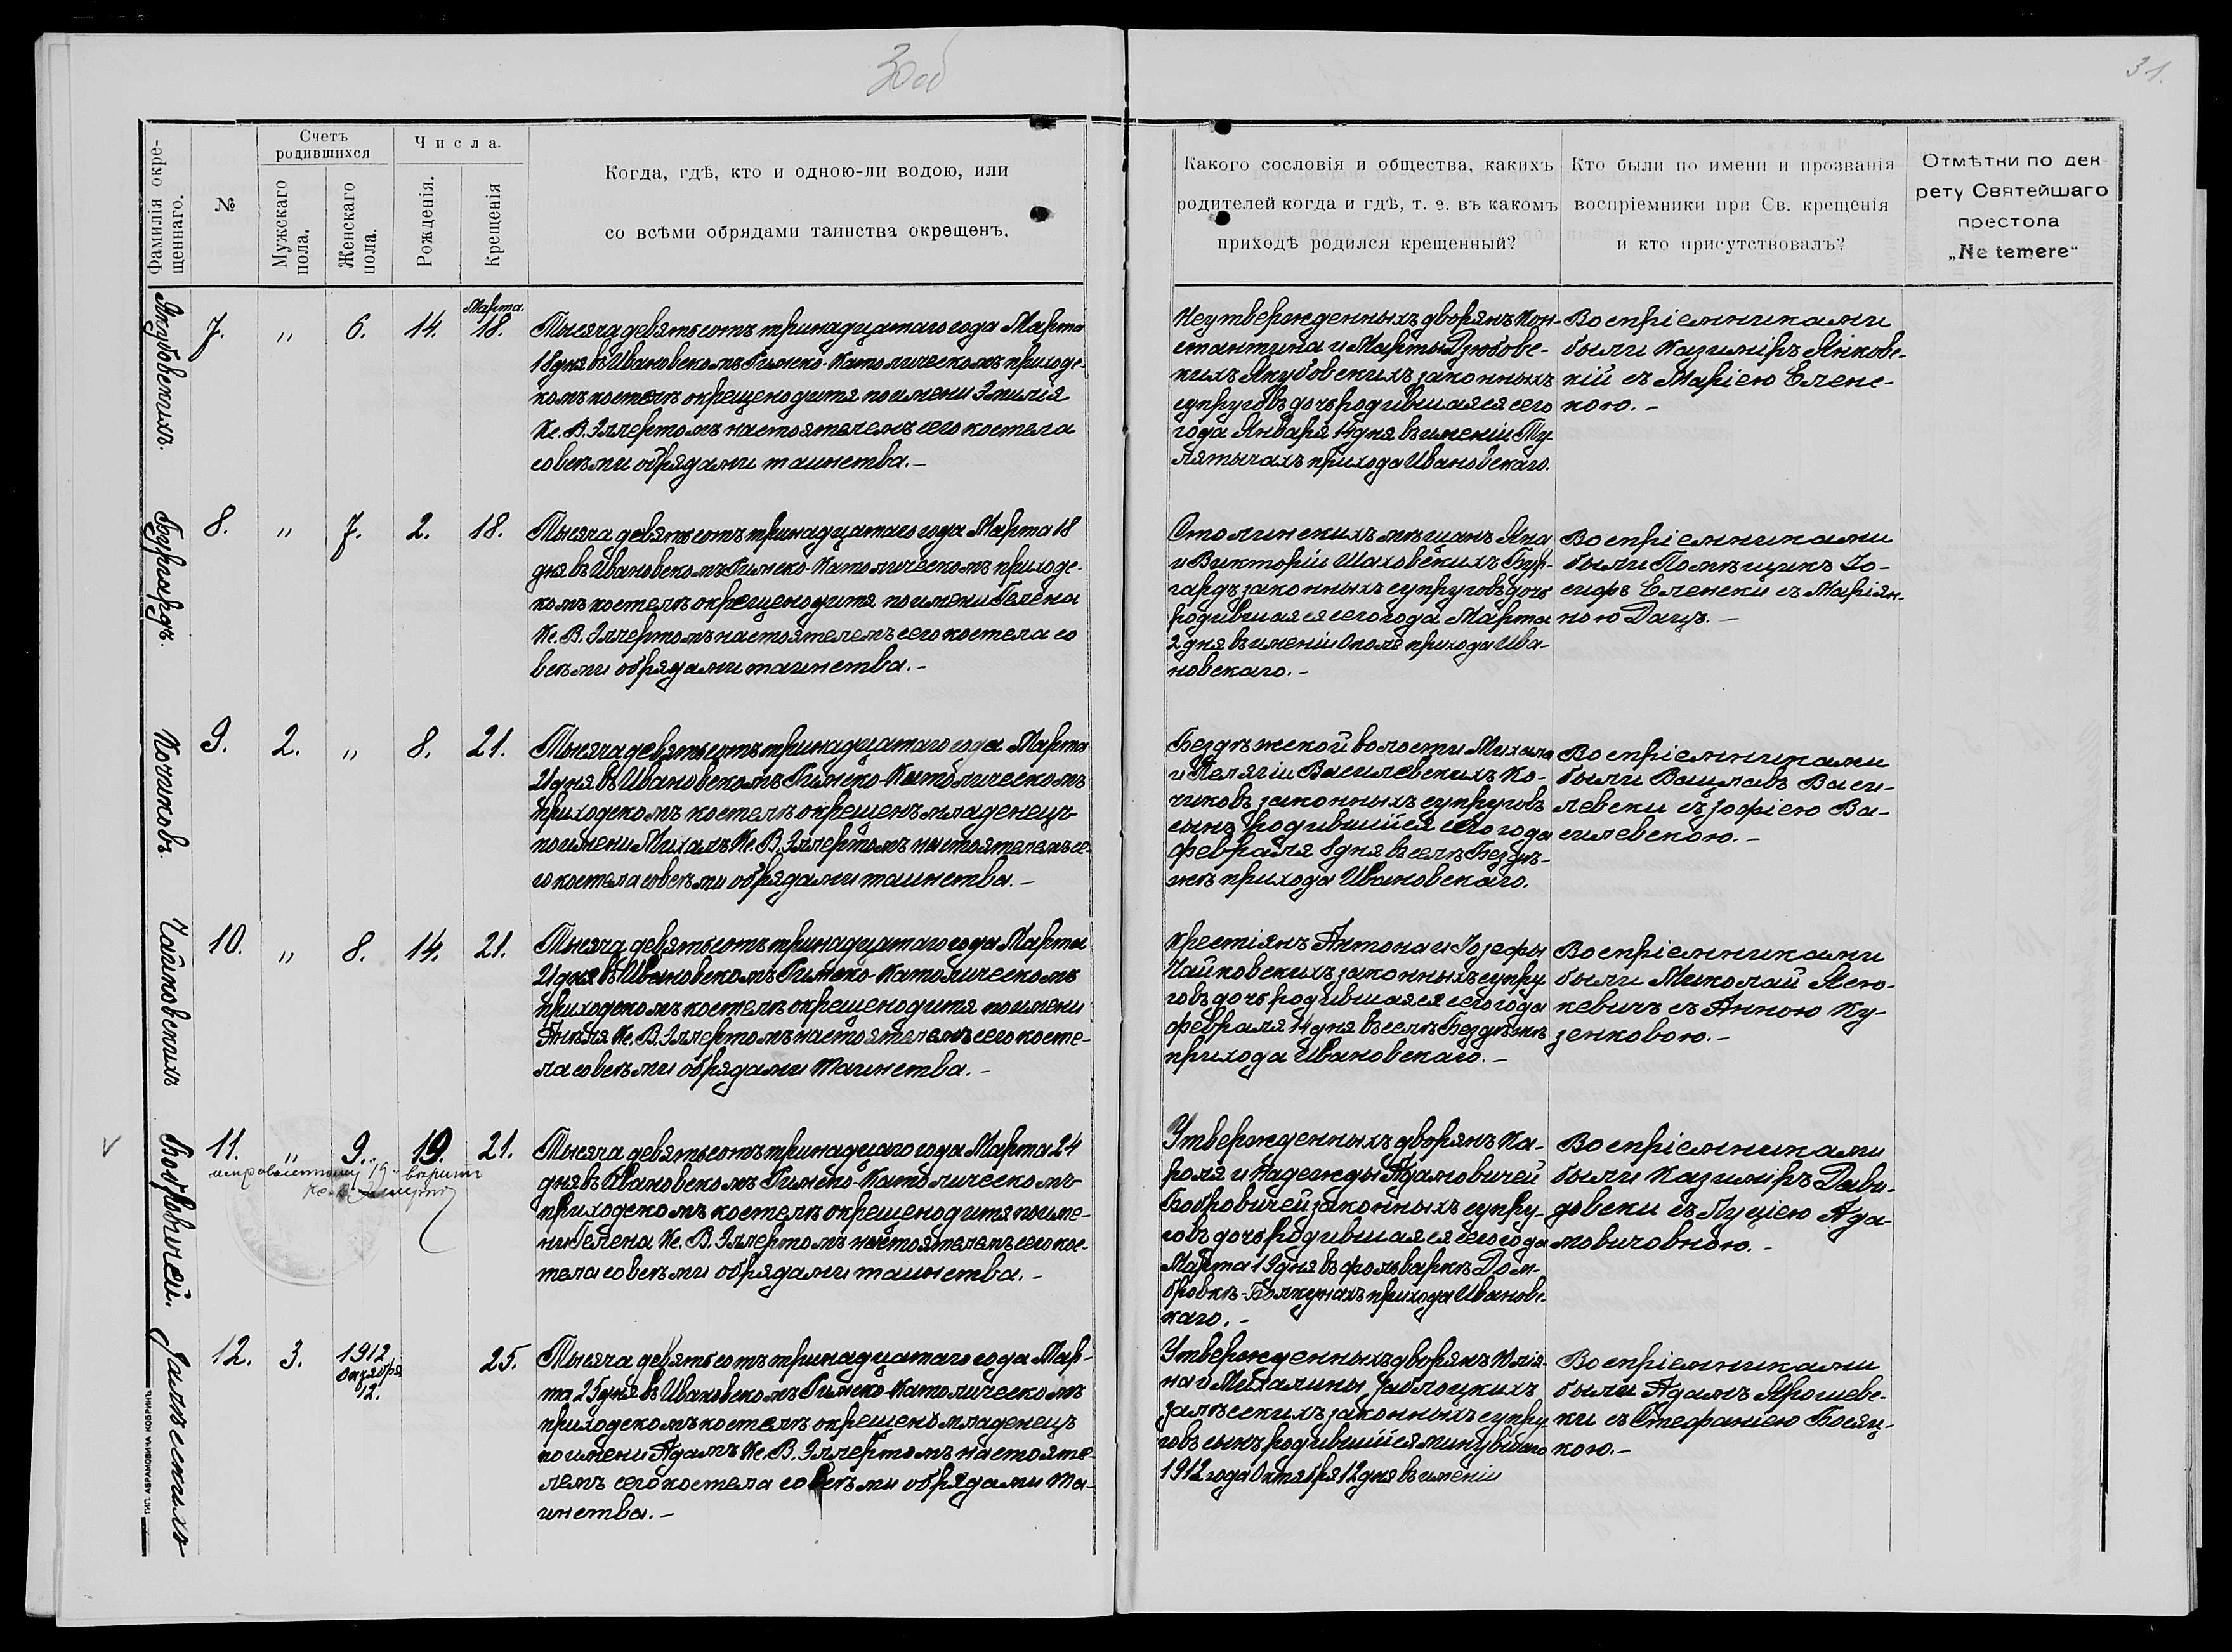 30 об
31.
Фамилія окре-
щеннаго.
№
Счетъ
родившихся
Мужскаго
пола.
Женскаго
пола.
Числа.
Рожденія.
Крещенія
Когда, гдѣ, кто и одною-ли водою, или
со всѣми обрядами таинства окрещенъ.
Какого сословія и общества, какихъ
родителей когда и гдѣ, т. е. въ какомъ
приходѣ родился крещенный?
Кто были по имени и прозванія
воспріемники при Св. крещенія
и кто присутствовалъ?
Отмѣтки по дек
рету Святейшаго
престола
„Ne temere“
Якубовскихъ.
7.
"
6.
14.
Марта.
18.
Тысяча девятьсотъ тринадцатаго года Марта
18 дня въ Ивановскомъ Римско-Католическомъ приходс-
комъ костелѣ окрещено дитя по имени Эмилія
Кс. В. Эллертомъ настоятелемъ сего костела
со всѣми обрядами таинства.-
Неутвержденныхъ дворянъ Кон-
стантина и Марты Дзюбовс-
кихъ Якубовскихъ законныхъ
супруговъ дочь родившаяся сего
года Января 14 дня въ имѣніи Пу-
лятычахъ прихода Ивановскаго.
Воспріемниками
были Казиміръ Янковс-
кій съ Маріею Еленс-
кою.-
Бургардъ.
8.
"
7.
2.
18.
Тысяча девятьсотъ тринадцатаго года Марта 18
дня въ Ивановскомъ Римско-Католическомъ приходс-
комъ костелѣ окрещено дитя по имени Гелена
Кс. В. Эллертомъ настоятелемъ сего костела со
всѣми обрядами таинства.-
Столинскихъ мѣщанъ Яна
и Викторіи Шаховскихъ Бур-
гардъ законныхъ супруговъ дочь
родившаяся сего года Марта
2 дня въ имѣніи Ополе прихода Ива-
новскаго.-
Воспріемниками
были Помѣщикъ Іо-
сифъ Еленски съ Маріян-
ною Дацъ.-
Кочиковъ.
9.
2.
"
8.
21.
Тысяча девятьсотъ тринадцатаго года Марта
21 дня въ Ивановскомъ Римско-Католическомъ
приходскомъ костелѣ окрещенъ младенецъ
по имени Михалъ Кс. В. Эллертомъ настоятелемъ се-
го костела со всѣми обрядами таинства.-
Бездѣжской волости Михала
и Пелягіи Василевскихъ Ко-
чиковъ законныхъ супруговъ
сынъ родившійся сего года
февраля 8 дня въ селѣ Бездѣ-
жѣ прихода Ивановскаго.
Воспріемниками
были Вацлавъ Васи-
левски съ Зофіею Ва-
силевскою.-
Чайковскихъ
10.
"
8.
14.
21.
Тысяча девятьсотъ тринадцатаго года Марта
21 дня въ Ивановскомъ Римско-Католическомъ
приходскомъ костелѣ окрещено дитя по имени
Анѣля Кс. В. Эллертомъ настоятелемъ сего косте-
ла со всѣми обрядами таинства.-
Крестіянъ Антона и Іозефы
Чайковскихъ законныхъ супру
говъ дочь родившаяся сего года
февраля 14 дня въ селѣ Бездѣжѣ
прихода Ивановскаго.-
Воспріемниками
были Миколай Ясю-
кевичъ съ Анною Ку-
зенковою.-
Бобровичей.
11.
"
9.
19.
21.
исправленному "19" вѣрить
Кс. В. Эллертъ
Тысяча девятьсотъ тринадцаго года Марта 24
дня въ Ивановскомъ Римско-Католическомъ
приходскомъ костелѣ окрещено дитя по име-
ни Гелена Кс. В. Эллертомъ настоятелемъ сего кос-
тела со всѣми обрядами таинства.-
Утвержденныхъ дворянъ Ка-
роля и Надежды Адамовичей
Бобровичей законныхъ супру-
говъ дочь родившаяся сего года
Марта 19 дня въ фольваркѣ Дом-
бровкѣ-Болкунахъ прихода Ивановс-
каго.-
Воспріемниками
были Казиміръ Дави-
довски съ Луціею Ада-
мовичовною.-
Залѣсскихъ
12.
3.
1912
Октября
12.
25.
Тысяча девятьсотъ тринадцатаго года Мар-
та 25 дня въ Ивановскомъ Римско-Католическомъ
приходскомъ костелѣ окрещенъ младенецъ
по имени Адамъ Кс. В. Эллертомъ настояте-
лемъ сего костела со всѣми обрядами та-
инства.-
Утвержденныхъ дворянъ Юлія-
на и Михалины Заблоцкихъ
Залѣсскихъ законныхъ супру-
говъ сынъ родившійся минувшаго
1912 года Октября 12 дня въ имѣніи
Воспріемниками
были Адамъ Ярошевс-
ки съ Стефаніею Босяц-
кою.-
ТИП. АБРАМОВИЧА КОБРИНЪ